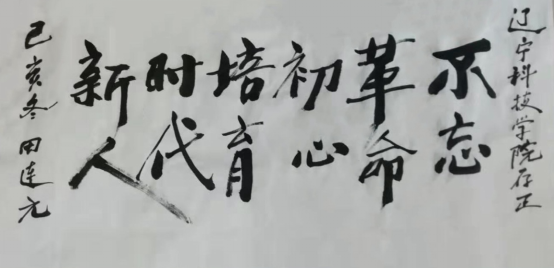 辽宁科技学院存正
不忘
革命
初心
培育
时代
新人
己亥冬田连元